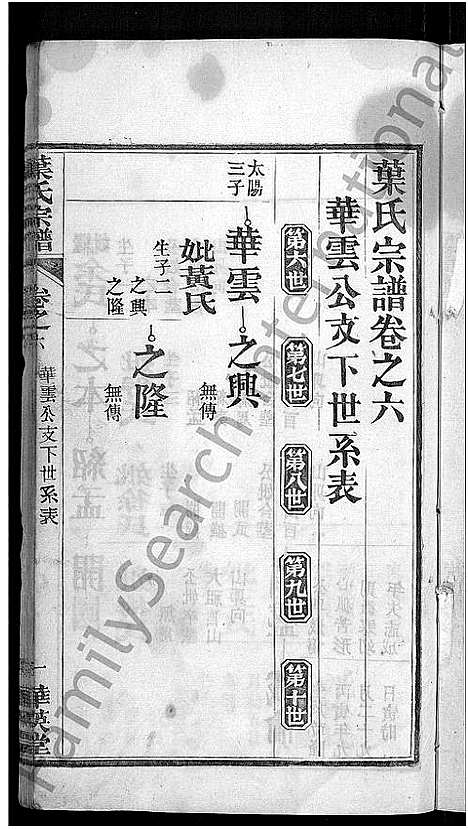 葉氏宗譜卷之六
華雲公支下世系表
第六世
第七世
第八世
第九世
第十世
太陽
三子
華雲
之興
無傳
妣黃氏
生子二
之興
之隆
之隆
無傳
葉氏宗譜
卷之六
華雲公支下世系表
一
華英堂
FamilySearch International